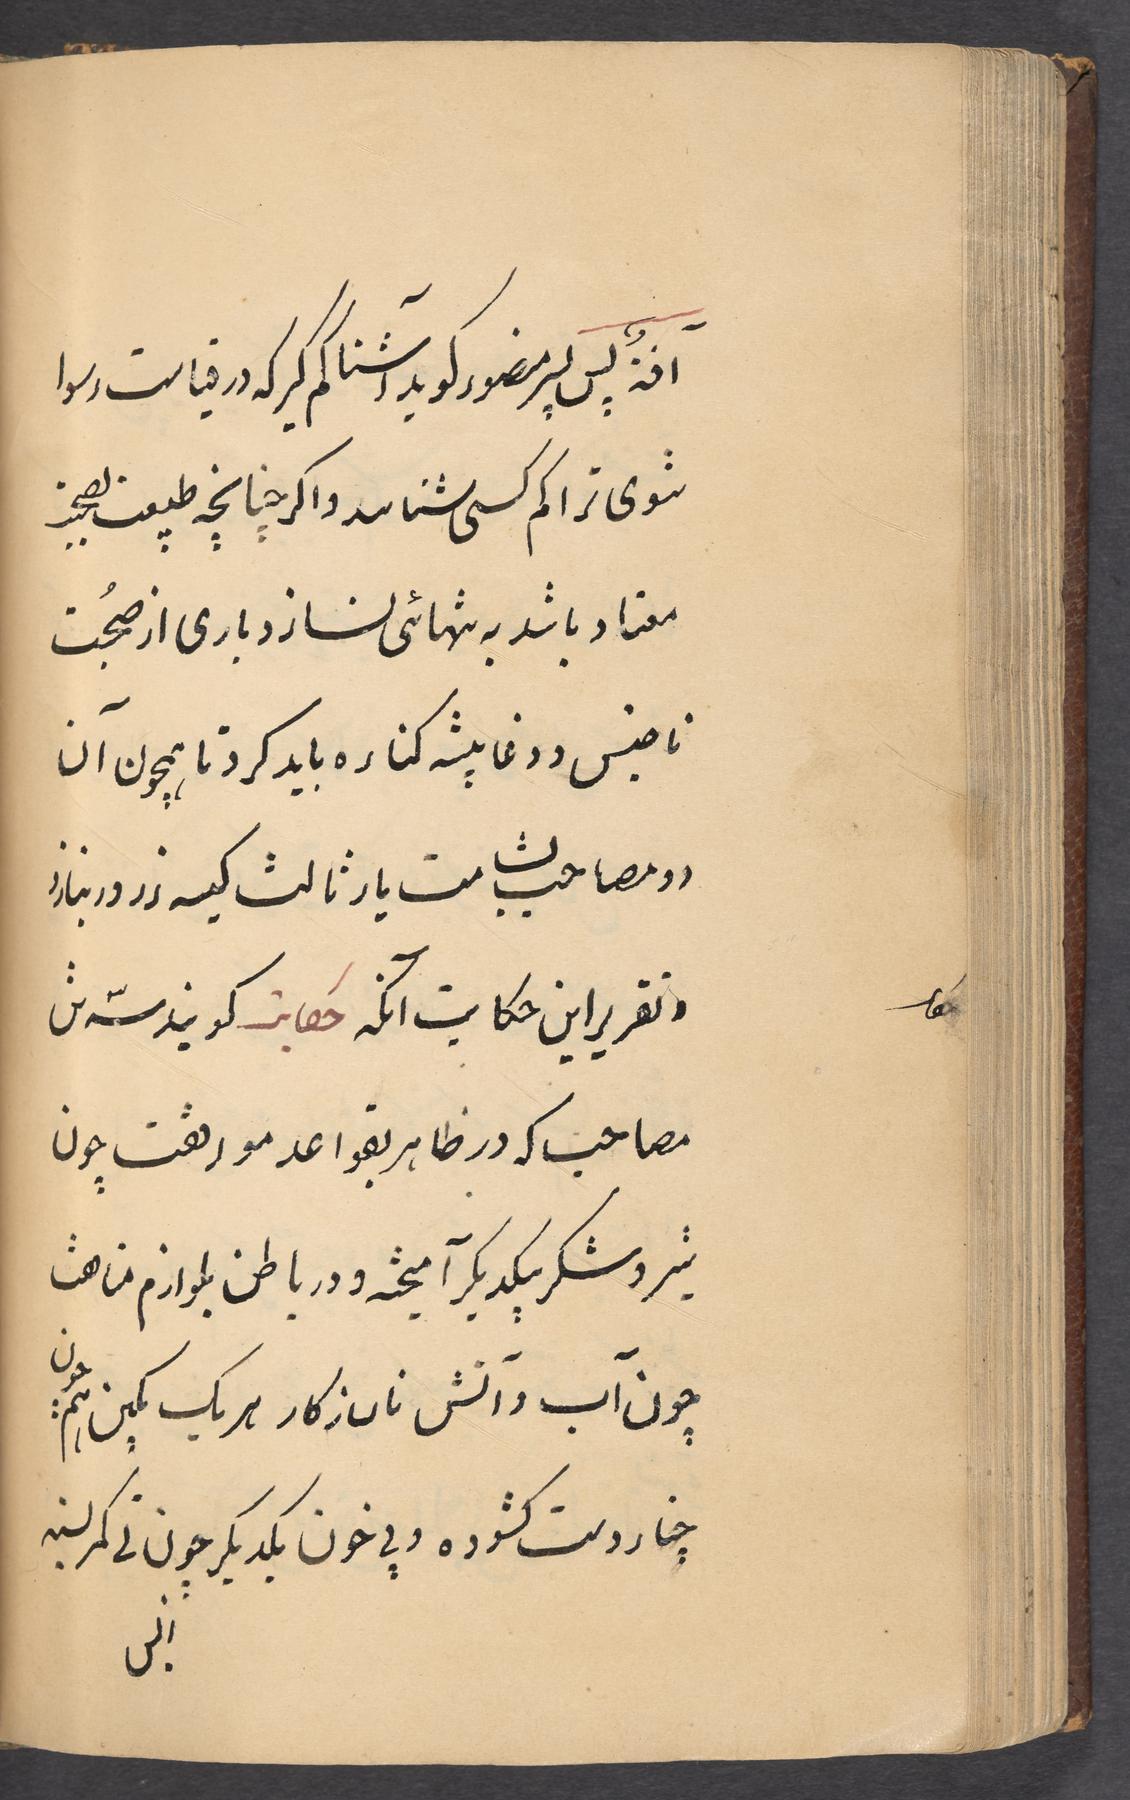 آفةٌ پس پیر منصور کوید آشنا کم گیر که در قیامت رسوا
شوی ترا کم کسی شناسد و اکر چنانچه طبیعت بصحبت
معتاد باشد به تنهائی نسازد باری از صحُبت
ناجنس و دغا پیشه کناره باید کرد تا همچون آن
دو مصاحب بشامت یار ثالث کیسه زر در نبازد
و تقریر این حکایت آنکه حکایت کویند سه تن
مصاحب که در ظاهر بقواعد موافقت چون
شیر و شکر بیکدیکر آمیخته و در باطن بلوازم مناهت
چون آب و آتش ناسازکار هر یک بکین هم چون
چنار دست کشوده و پی خون یکدیکر چون نی کمر بسته
حکایت